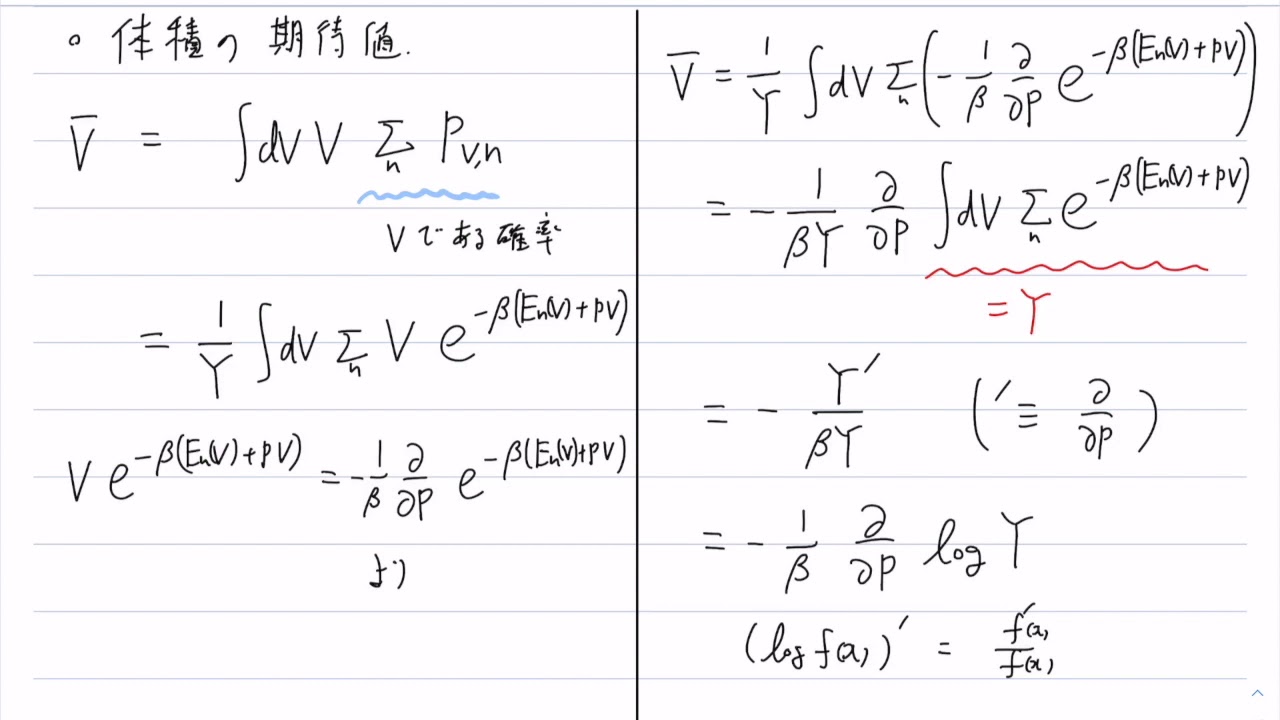 ◦ 体積の期待値.
V̄ = ∫dV V Σₙ P_{V,n}
Vである確率
= 1/Y ∫dV Σₙ V e^{-β(Eₙ(V)+PV)}
V e^{-β(Eₙ(V)+PV)} = -1/β ∂/∂P e^{-β(Eₙ(V)+PV)}
より
V̄ = 1/Y ∫dV Σₙ (-1/β ∂/∂P e^{-β(Eₙ(V)+PV)})
= -1/(βY) ∂/∂P ∫dV Σₙ e^{-β(Eₙ(V)+PV)}
= Y
= - Y′/(βY) (′ ≡ ∂/∂P)
= -1/β ∂/∂P log Y
(log f(x))′ = f′(x)/f(x)